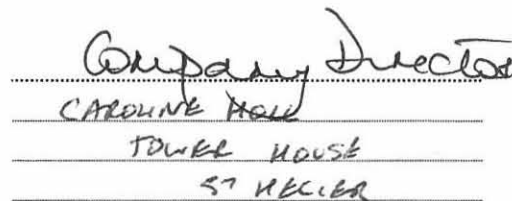 Company Director
CAROLINE
TOWER HOUSE
ST HELIER